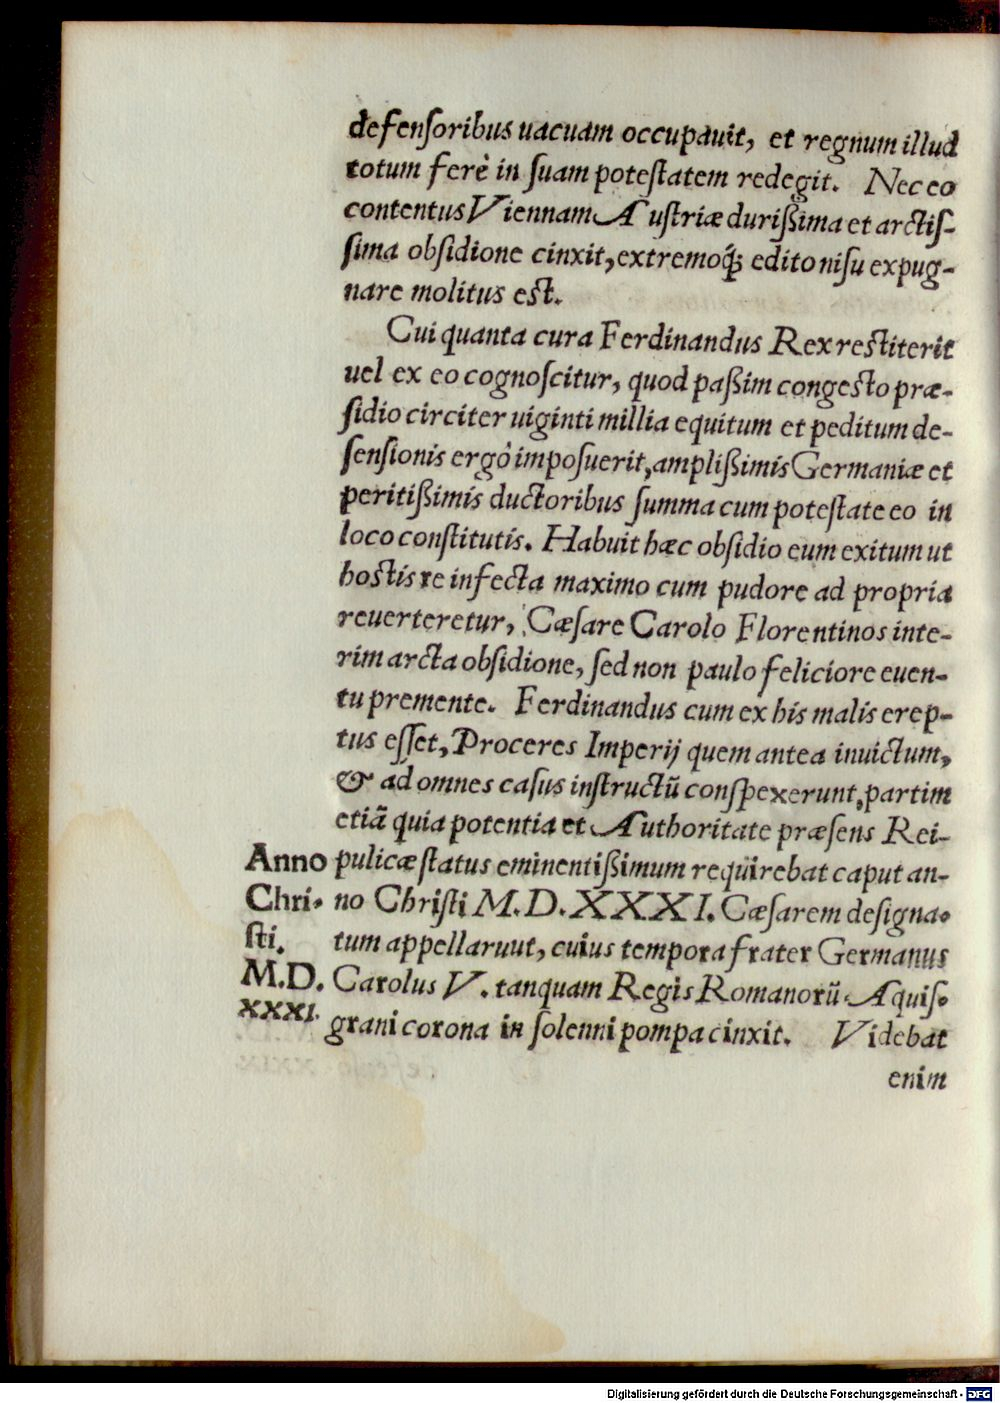 defenſoribus uacuam occupauit, et regnum illud
totum ferè in ſuam poteſtatem redegit. Nec eo
contentus Viennam Auſtriæ durißima et arctiſ-
ſima obſidione cinxit, extremoq́; edito niſu expug-
nare molitus eſt.
Cui quanta cura Ferdinandus Rex reſtiterit
uel ex eo cognoſcitur, quod paßim congeſto præ-
ſidio circiter uiginti millia equitum et peditum de-
ſenſionis ergò impoſuerit, amplißimis Germaniæ et
peritißimis ductoribus ſumma cum poteſtate eo in
loco conſtitutis. Habuit hæc obſidio eum exitum ut
hoſtis re infecta maximo cum pudore ad propria
reuerteretur, Cæſare Carolo Florentinos inte-
rim arcta obſidione, ſed non paulo feliciore euen-
tu premente. Ferdinandus cum ex his malis erep-
tus eſſet, Proceres Imperij quem antea inuictum,
& ad omnes caſus inſtructũ conſpexerunt, partim
etiã quia potentia et Authoritate præſens Rei-
pulicæ ſtatus eminentißimum requirebat caput an-
no Chriſti M.D.XXXI. Cæſarem deſigna-
tum appellaruut, cuius tempora frater Germanus
Carolus V. tanquam Regis Romanorũ Aquiſ-
grani corona in ſolenni pompa cinxit. Videbat
enim
Anno
Chri-
ſti.
M.D.
XXXI.
Digitalisierung gefördert durch die Deutsche Forschungsgemeinschaft - DFG